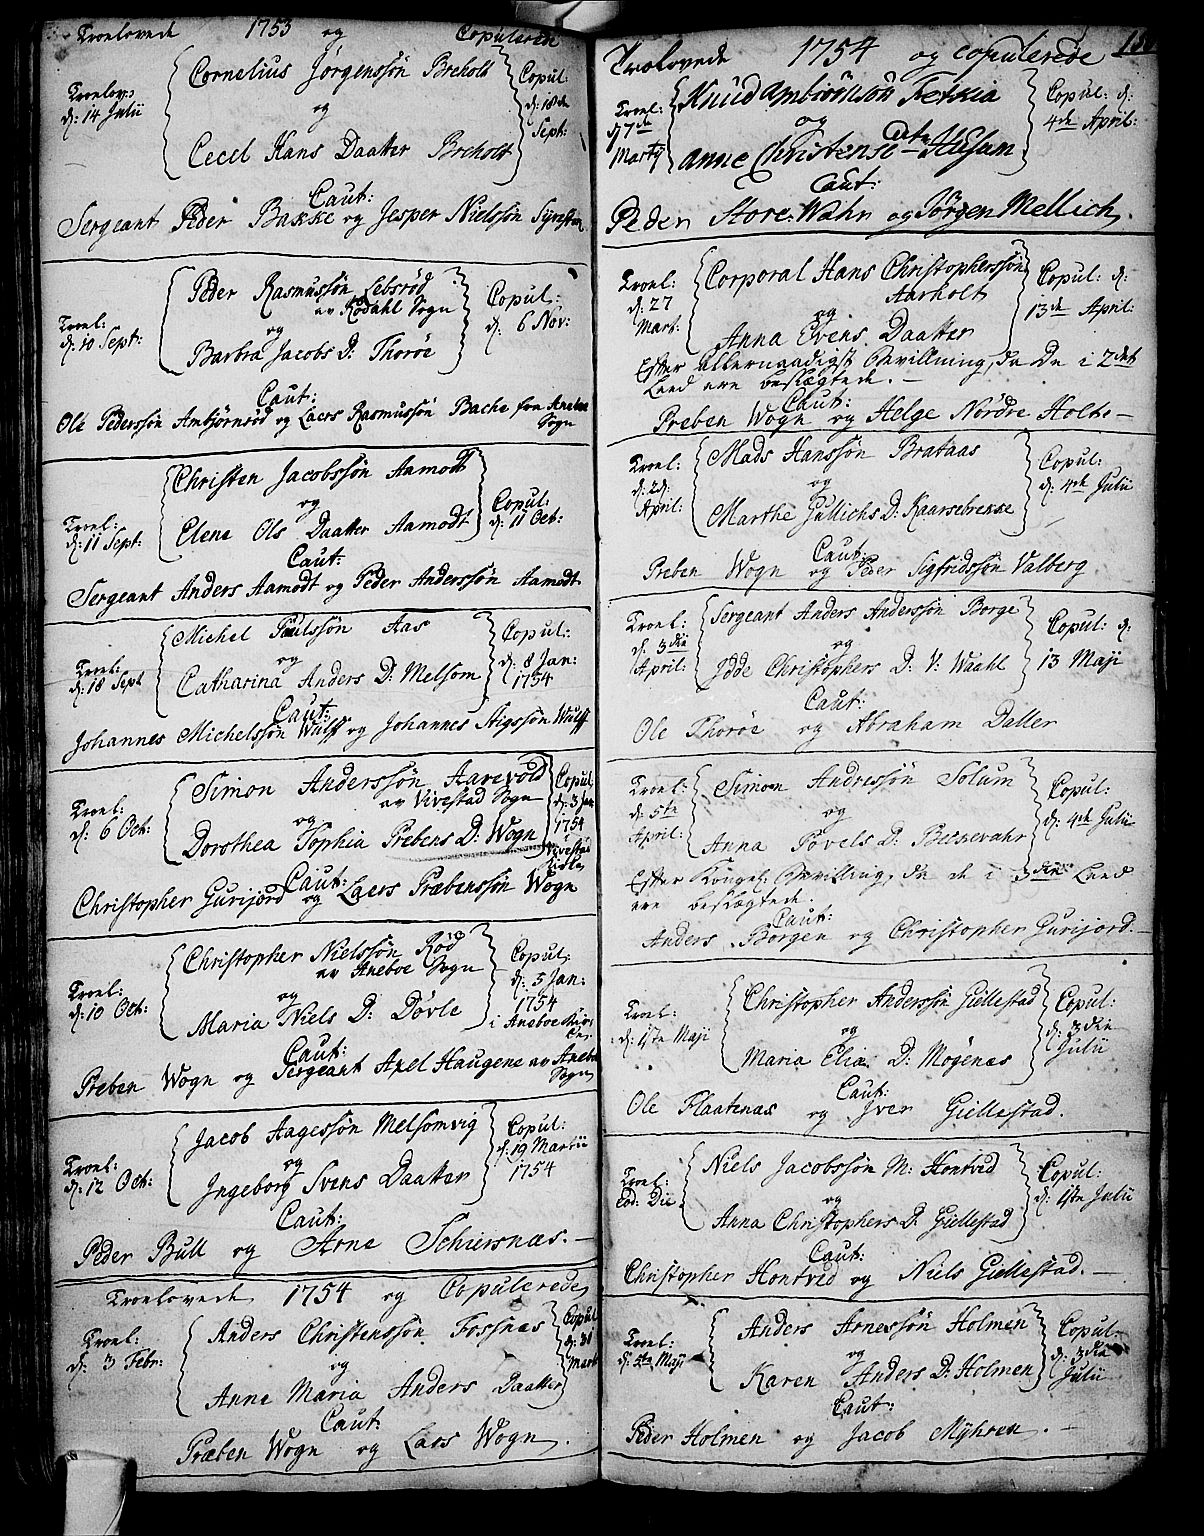 Troelovede 1753 og Copulerede
Troelov:
d: 14 Julii
Cornelius Jørgenssøn Breholt
og
Cecel Hans Daatter Breholt
Copul:
d: 18de
Sept:
Caut:
Sergeant Peder Bakke og Jesper Nielssøn
Troel:
d: 10 Sept:
Peder Rasmussøn Lebsrød
av Rodahl Sogn
og
Barbra Jacobs D: Thorøe
Copul:
d: 6 Nov:
Caut:
Ole Pederssøn Ambjørnrød og Laers Rasmussøn Bache fra Aneboe
Sogn
Troel:
d: 11 Sept:
Christen Jacobssøn Aamodt
og
Elene Ols Daatter Aamodt
Copul:
d: 11 Oct:
Caut:
Sergeant Anders Aamodt og Peder Anderssøn Aamodt
Troel:
d: 18 Sept
Michel Poulssøn Aas
og
Catharina Anders D: Melsom
Copul:
d: 8 Jan:
1754
Caut:
Johannes Michelssøn Wulff og Johannes Aigssøn Wulff
Troel:
d: 6 Oct:
Simon Anderssøn Aarevold
av Vivestad Sogn
og
Dorothea Sophia Prebens D: Wogn
Copul:
d: 3 Jan
1754
i Vivestad
Kirke
Caut:
Christopher Gurijord og Laers Præbenssøn Wogn
Troel:
d: 10 Oct:
Christopher Nielssøn Rød
av Aneboe Sogn
og
Maria Niels D: Døvle
Copul:
d: 5 Jan:
1754
i Aneboe Kir:
Caut:
Preben Wogn og Sergeant Axel Haugene av Aneboe
Sogn
Troel:
d: 12 Oct:
Jacob Aagessøn Melsomvig
og
Ingeborg Svens Daatter
Copul:
d: 19 Martii
1754
Caut:
Peder Bull og Arne Schiersnæs.
Troelovede 1754 og Copulerede
Troel:
d: 3 Febr:
Anders Christenssøn Fossnæs
og
Anne Maria Anders Daatter
Copul
d: 31
Mart
Caut:
Præben Wogn og Lars Wogn.
Troelovede 1754 og copulerede
Troel:
d 7de
Martij
Knud Ambiörnsøn
og
Anne Christens Datr Husum
Copul: d:
4de April:
Caut:
Peder Store Wahr og Jörgen Mellich.
Troel:
d: 27
Mart:
Corporal Hans Christopherssøn
Aarholt
og
Anna Evens Daatter
Copul: d:
13de April:
Efter allernaadigst Bevillning, da De i 2det
Leed ere beslægtede.
Caut:
Preben Wogn og Helge Nordre Holt.
Troel:
d: 2d:
April:
Mads Hanssøn Brataas
og
Marthe Gullichs D: Kaarsebrekke
Copul:
d: 4de Julii
Caut:
Preben Wogn og Peder Sigfridssøn Valberg
Troel:
d: 3die
April:
Sergeant Anders Anderssøn Borge
og
Idde Christophers D: V: Waahl
Copul: d:
13 Maji
Caut:
Ole Thorøe og Abraham Daller
Troel:
d: 5te
April:
Simon Andressøn Solum
og
Anna Povels D: Bessevahr
Copul:
d: 4de Julii
Efter Kongel: Bevilling, da de i 3die Leed
ere beslægtede.
Caut:
Anders Borgen og Christopher Gurijord.
Troel:
d: 1ste Maji
Christopher Anderssøn Giellestad
og
Maria Eliæ D: Mogenæs
Copul:
d: 3die
Julii
Caut:
Ole Flaatenæs og Iver Giellestad.
Troel:
eod: Die
Niels Jacobssøn M: Hontvid
og
Anna Christophers D: Giellestad
Copul:
d: 1ste Julii
Caut:
Christopher Hontvid og Niels Giellestad.
Troel:
d: 5te Maji
Anders Arnessøn Holmen
og
Karen Anders D: Holmen
Copul:
d: 3die
Julii
Caut:
Peder Holmen og Jacob Myhren.